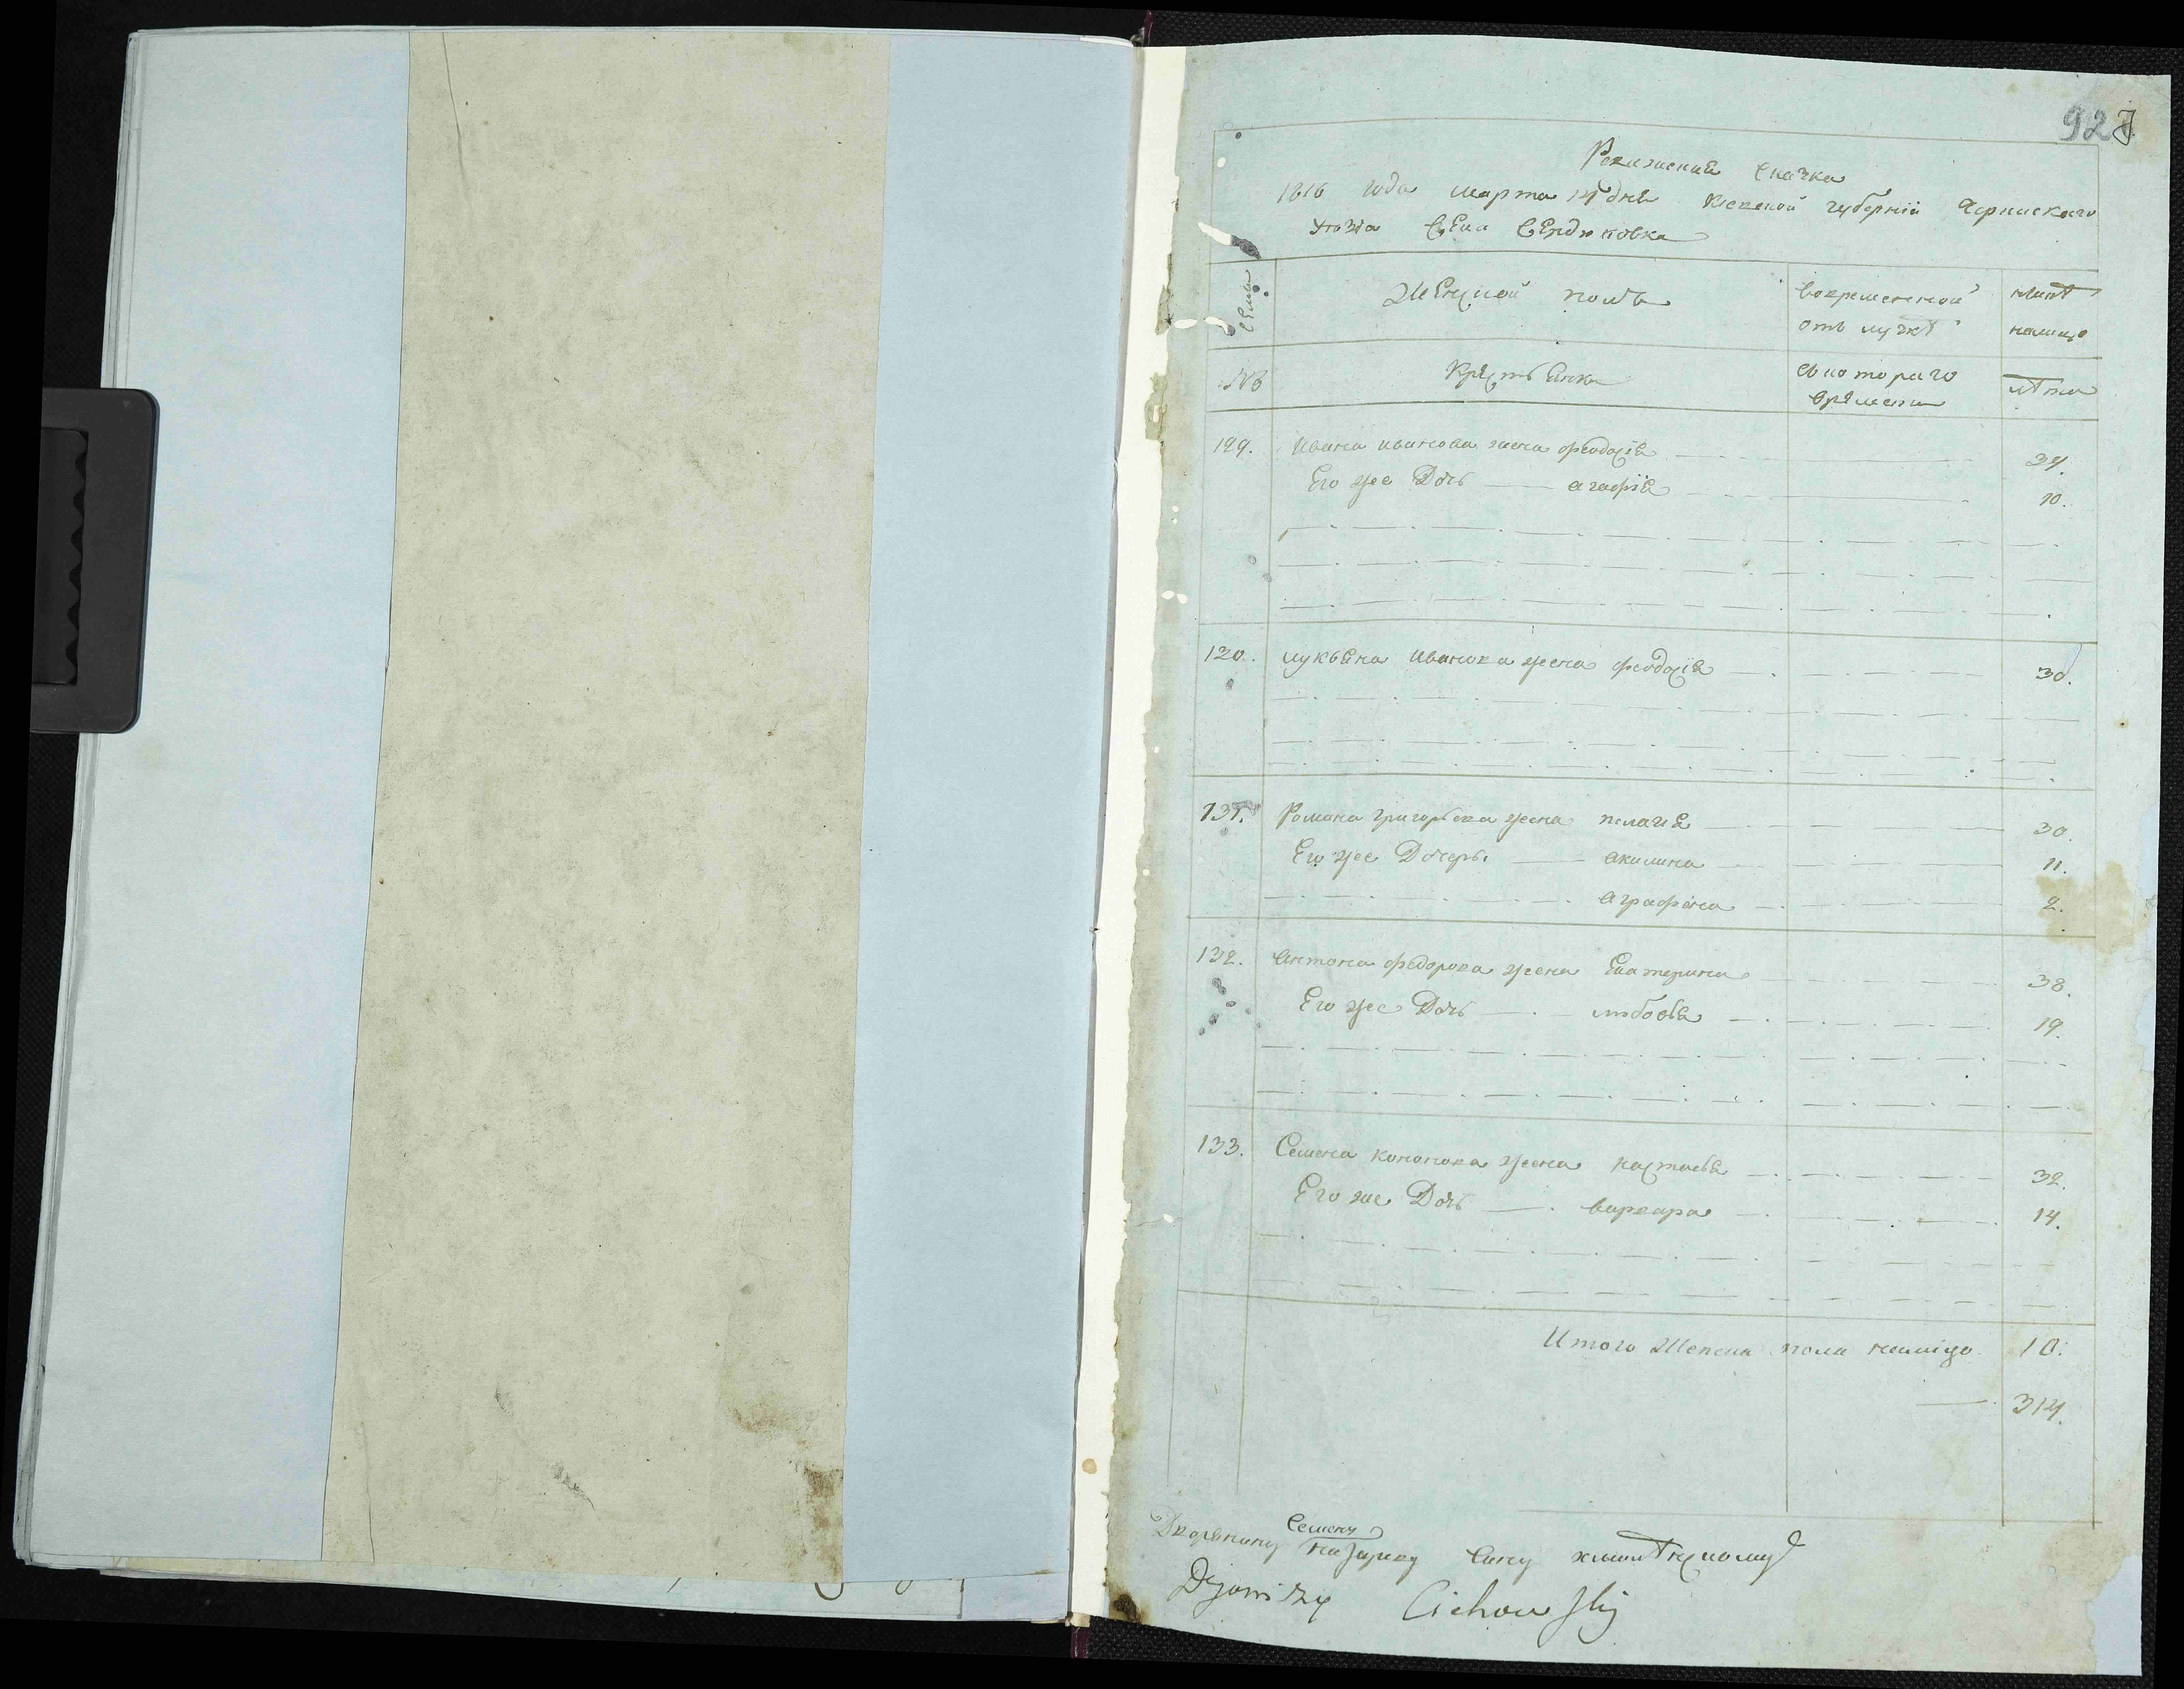 92
Ревизская сказка
1816 года марта 14 дня Киевской губернии Черкаского
уезда села Сердюковка
семьи
женской полъ
вовременной
отъ лучке
ныне
налицо
№
Крестьянка
съ которого
времени
лета
129. Ивана иванова жена феодосія 34.
Его же Дочь агафія 10.
120. лукьяна иванова жена феодосія 30.
131. Романа григорьева жена пелагея 30.
Его же Дочери акилина 11.
аграфена 2.
132. Антона федорова жена Екатерина 38.
Его же Дочь любовь 19.
133. Семена кононова жена настасья 32.
Его же Дочь варвара 14.
Итого женска пола налицо 10.
314.
Дворянину Семену
Назарову сину
Dyonizy Cichowskij